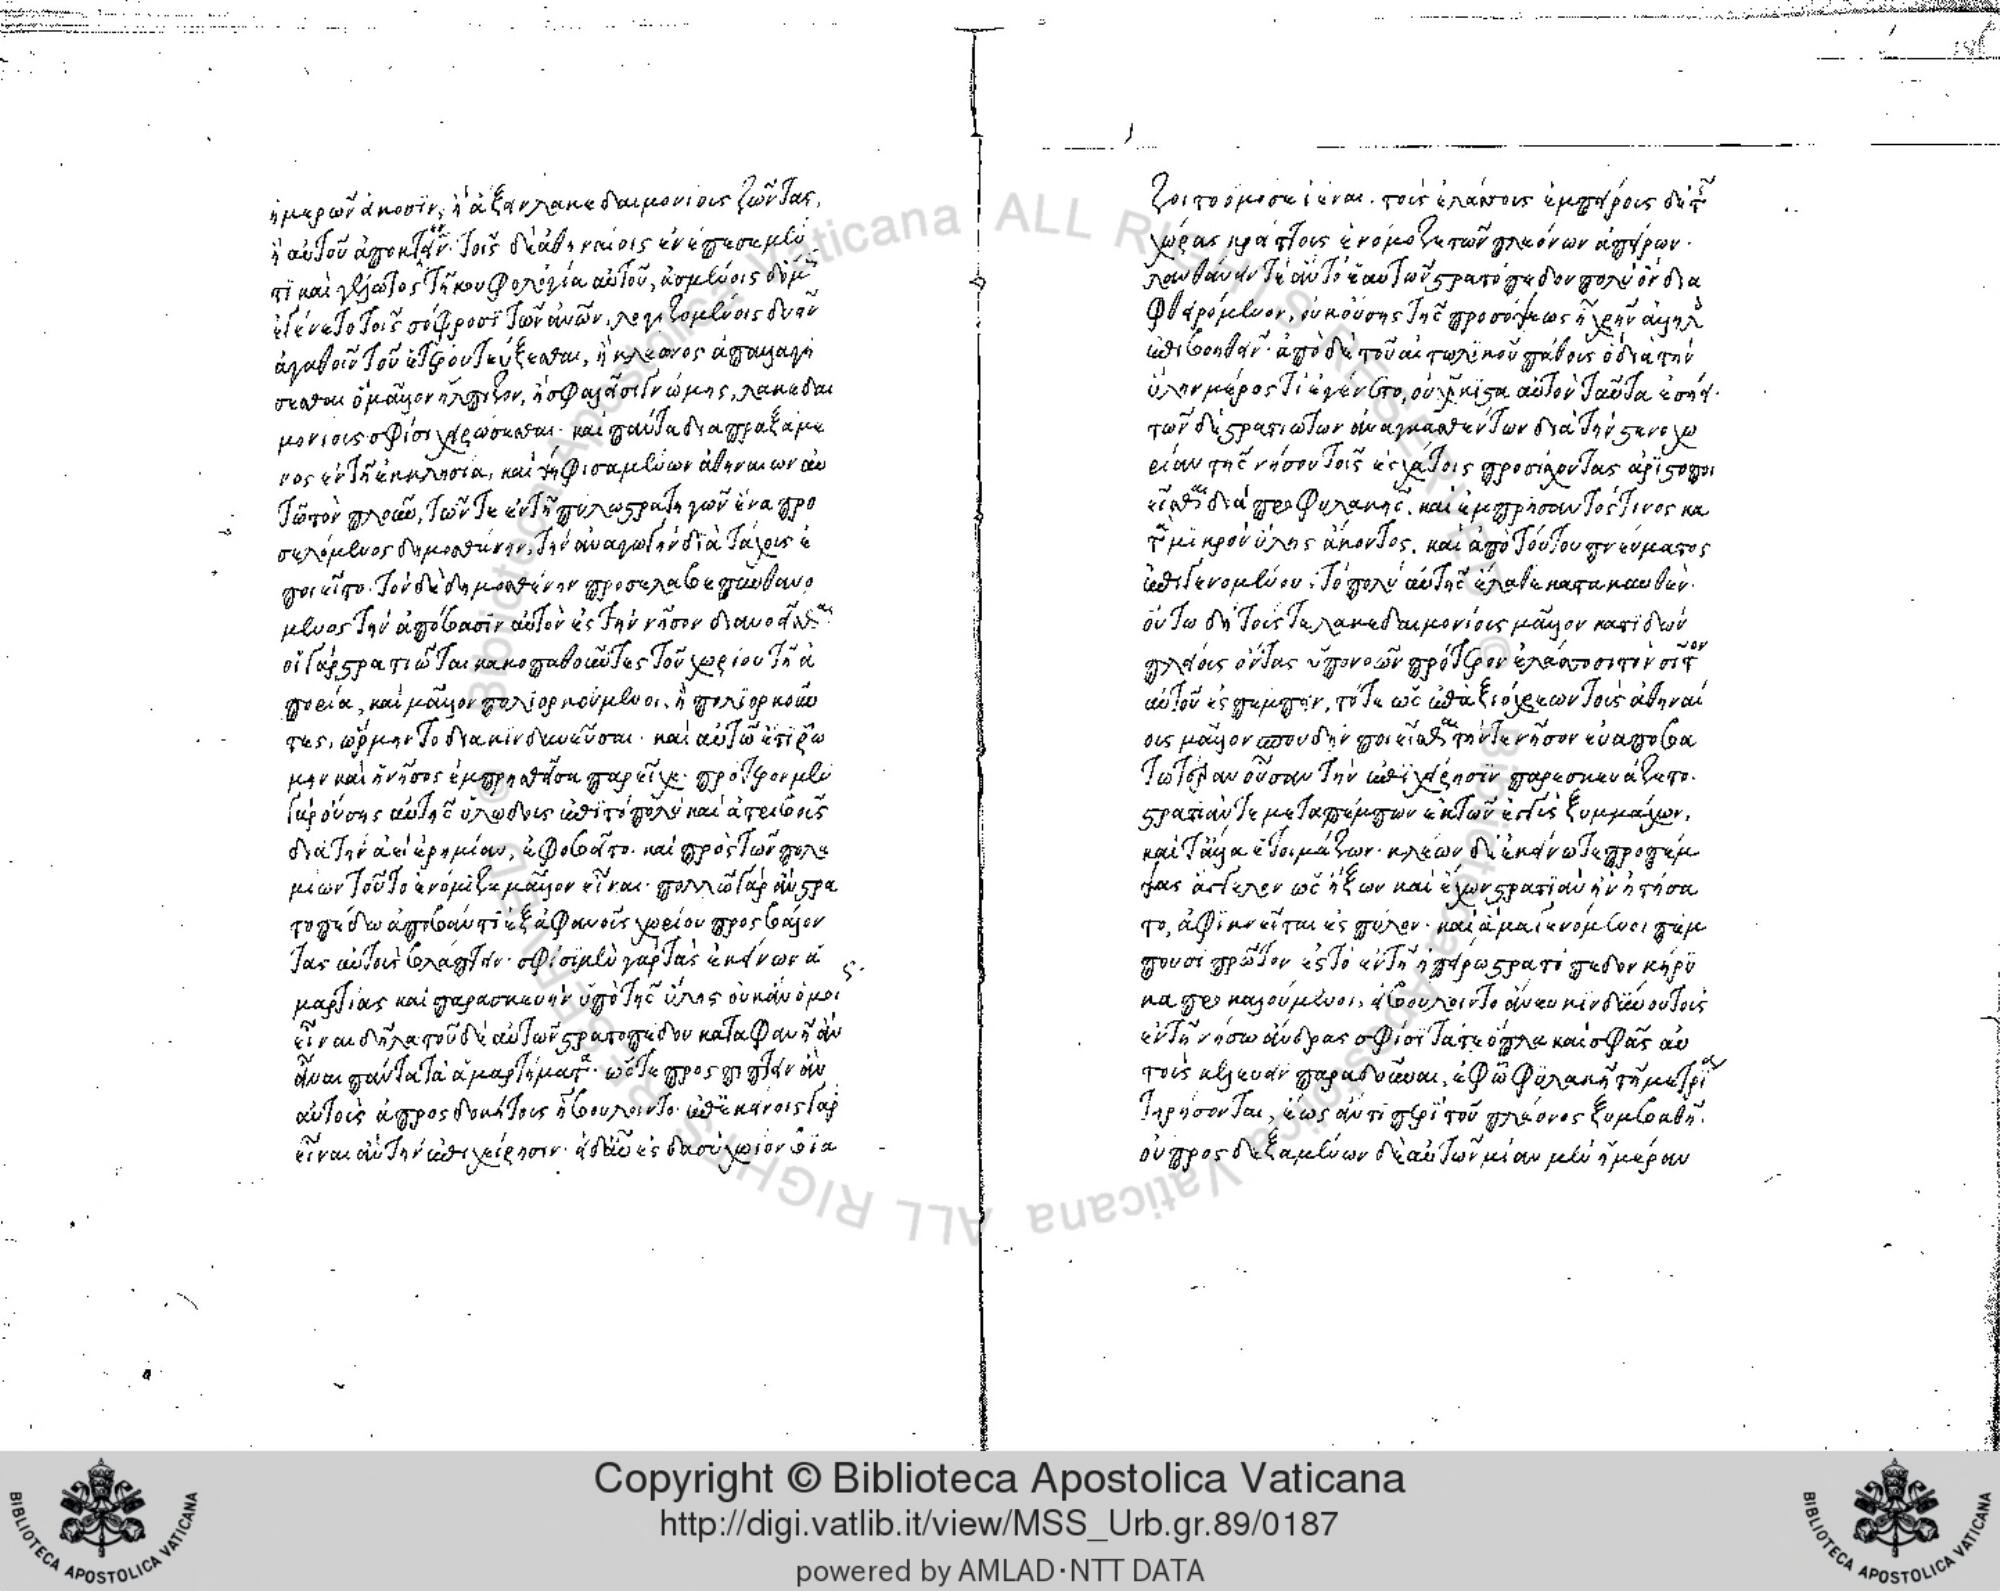 ἡμερῶν εἴκοσιν, ἢ ἄξειν λακεδαιμονίους ζῶντας,
ἢ αὐτοῦ ἀποκτενεῖν. τοῖς δὲ ἀθηναίοις ἐνέπεσε μέν
τι καὶ γέλωτος τῇ κουφολογίᾳ αὐτοῦ, ἀσμένοις δ' ὅμως
ἐγένετο τοῖς σώφροσι τῶν ἀνων, λογιζομένοις δυεῖν
ἀγαθοῖν τοῦ ἑτέρου τεύξεσθαι, ἢ κλέωνος ἀπαλλαγή
σεσθαι ὃ μᾶλλον ἤλπιζον, ἢ σφαλεῖσι γνώμης, λακεδαι
μονίους σφίσι χειρώσεσθαι. καὶ πάντα διαπραξάμε
νος ἐν τῇ ἐκκλησίᾳ, καὶ ψηφισαμένων ἀθηναίων αὐ
τῷ τὸν πλοῦν, τῶν τε ἐν τῇ πύλῳ στρατηγῶν ἕνα προ
σελόμενος δημοσθένην, τὴν ἀναγωγὴν διὰ τάχους ἐ
ποιεῖτο. τὸν δὲ δημοσθένην προσέλαβε πυνθανό
μενος τὴν ἀπόβασιν αὐτὸν ἐς τὴν νῆσον διανοεῖσθαι
οἱ γὰρ στρατιῶται κακοπαθοῦντες τοῦ χωρίου τῇ ἀ
πορίᾳ, καὶ μᾶλλον πολιορκούμενοι, ἢ πολιορκοῦν
τες, ὥρμηντο διακινδυνεῦσαι. καὶ αὐτῷ ἔτι ῥώ
μην καὶ ἡ νῆσος ἐμπρησθεῖσα παρεῖχε. πρότερον μὲν
γὰρ οὔσης αὐτῆς ὑλώδους ἐπὶ τὸ πολὺ καὶ ἀτριβοῦς
διὰ τὴν ἀεὶ ἐρημίαν, ἐφοβεῖτο. καὶ πρὸς τῶν πολε
μίων τοῦτο ἐνόμιζε μᾶλλον εἶναι. πολλῷ γὰρ ἂν στρα
τοπέδῳ ἀποβάντι ἐξ ἀφανοῦς χωρίου προσβάλλον
τας αὐτοὺς βλάπτειν. σφίσι μὲν γὰρ τὰς ἐκείνων ἁ
μαρτίας καὶ παρασκευὴν ὑπὸ τῆς ὕλης οὐκ ἂν ὁμοί ς.
εἶναι δῆλα τοῦ δὲ αὐτῶν στρατοπέδου καταφανῆ ἂν
εἶναι πάντα τὰ ἁμαρτήματα. ὥστε προσπίπτειν ἂν
αὐτοὺς ἀπροσδοκήτους ᾗ βούλοιντο. ἐπ' ἐκείνοις γὰρ
εἶναι ἂν τὴν ἐπιχείρησιν. εἰ δ' αὖ ἐς δασὺ χωρίον βιά
ζοιτο ὁμόσε ἰέναι. τοὺς ἐλάσσους ἐμπείρους δὲ τῆς
χώρας κρείττους ἐνόμιζε τῶν πλεόνων ἀπείρων.
λανθάνειν τε ἂν τὸ ἑαυτῶν στρατόπεδον πολὺ ὂν δια
φθειρόμενον, οὐκ οὔσης τῆς προσόψεως ᾗ χρῆν ἀλλήλοις
ἐπιβοηθεῖν. ἀπὸ δὲ τοῦ αἰτωλικοῦ πάθους ὃ διὰ τὴν
ὕλην μέρος τι ἐγένετο, οὐχ ἥκιστα αὐτὸν ταῦτα ἐσῄει.
τῶν δὲ στρατιωτῶν ἀναγκασθέντων διὰ τὴν στενοχω
ρίαν τῆς νήσου τοῖς ἐσχάτοις προσίσχοντας ἀριστοποι
εῖσθαι διὰ προφυλακῆς. καὶ ἐμπρήσαντός τινος κα
τὰ μικρὸν ὕλης ἄκοντος. καὶ ἀπὸ τούτου πνεύματος
ἐπιγενομένου. τὸ πολὺ αὐτῆς ἔλαθε κατακαυθέν.
οὕτω δὴ τούς τε λακεδαιμονίους μᾶλλον κατιδὼν
πλείους ὄντας ὑπονοῶν πρότερον ἐλάσσοσι τὸν σῖτον
αὐτοῦ ἐσπέμπειν, τότε ὡς ἐπ' ἀξιόχρεων τοὺς ἀθηναί
ους μᾶλλον σπουδὴν ποιεῖσθαι τήν τε νῆσον εὐαποβα
τωτέραν οὖσαν τὴν ἐπιχείρησιν παρεσκευάζετο.
στρατιάν τε μεταπέμπων ἐκ τῶν ἐγγὺς ξυμμάχων,
καὶ τἆλλα ἑτοιμάζων. κλέων δὲ ἐκείνῳ τε προπέμ
ψας ἄγγελον ὡς ἥξων καὶ ἔχων στρατιὰν ἣν ᾐτήσα
το, ἀφικνεῖται ἐς πύλον. καὶ ἅμα γενόμενοι πέμ
πουσι πρῶτον ἐς τὸ ἐν τῇ ἠπείρῳ στρατόπεδον κήρυ
κα προκαλούμενοι, εἰ βούλοιντο ἄνευ κινδύνου τοὺς
ἐν τῇ νήσῳ ἄνδρας σφίσι τά τε ὅπλα καὶ σφᾶς αὐ
τοὺς κελεύειν παραδοῦναι, ἐφ' ᾧ φυλακῇ τῇ μετρίᾳ
τηρήσονται, ἕως ἄν τι περὶ τοῦ πλέονος ξυμβαθῇ.
οὐ προσδεξαμένων δὲ αὐτῶν μίαν μὲν ἡμέραν
Copyright © Biblioteca Apostolica Vaticana
http://digi.vatlib.it/view/MSS_Urb.gr.89/0187
powered by AMLAD·NTT DATA